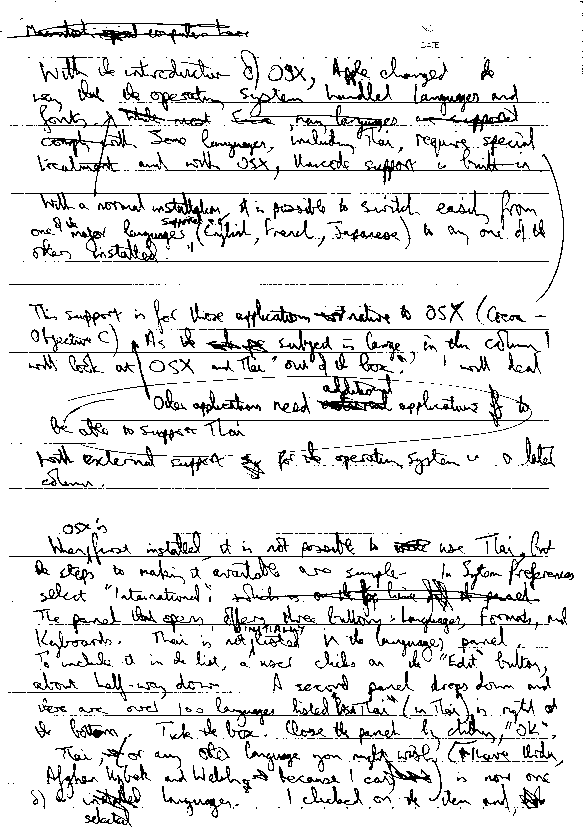 NO.
DATE
With the introduction of OSX, Apple changed the
way that the operating system handled languages and
fonts, most languages
with Some languages, including Thai, require special
treatment and with OSX, Unicode support is built in.
With a normal installation, it is possible to switch easily from
one of the major languages supported (English, French, Japanese) to any one of the
others installed.
This support is for those applications native to OSX (Cocoa -
Objective C) As the subject is large, in this column I
will look at OSX and Thai "out of the box". I will deal
additional
Other applications need applications if to
be able to support Thai
with external support for the operating system in a later
column.
OSX is
When first installed it is not possible to use Thai, but
the steps to making it available are simple. In System Preferences
select "International"; which is on the panel
The panel that opens offers three buttons - Languages, Formats, and
Keyboards. Thai is not initially listed in the languages panel.
To include it in the list, a user clicks on the "Edit" button,
about half-way down. A second panel drops down and
there are over 100 languages listed. "Thai" (in Thai) is right at
the bottom. Tick the box. Close the panel by clicking "OK".
Thai, or any other language you might wish (I have
Afghan Uzbek and Welsh because I can) is now one
of the languages. I clicked on the item and
selected